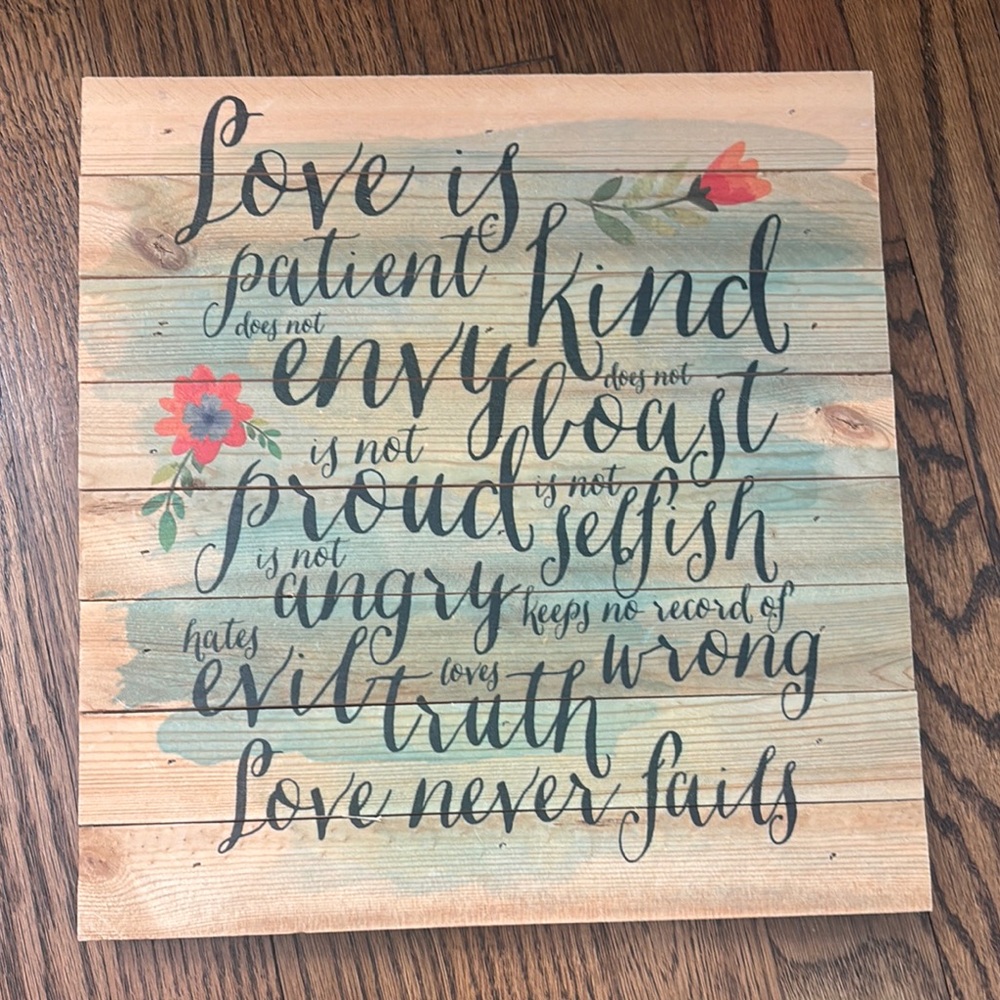 Love is
patient kind
does not
envy does not
boast
is not
proud is not
selfish
is not
angry keeps no record of
wrong
hates
evil loves
truth
Love never fails